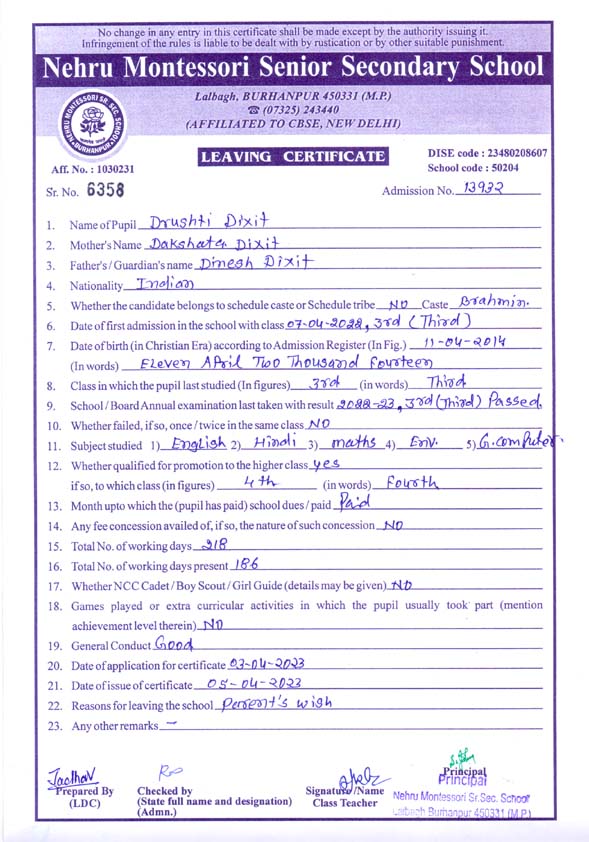 No change in any entry in this certificate shall be made except by the authority issuing it.
Infringement of the rules is liable to be dealt with by rustication or by other suitable punishment.
Nehru Montessori Senior Secondary School
Lalbagh, BURHANPUR 450331 (M.P.)
☎ (07325) 243440
(AFFILIATED TO CBSE, NEW DELHI)
NEHRU MONTESSORI SR. SEC. SCHOOL
BURHANPUR
LEAVING CERTIFICATE
DISE code : 23480208607
Aff. No. : 1030231 School code : 50204
Sr. No. 6358 Admission No. 13932
1. Name of Pupil Drushti Dixit
2. Mother's Name Dakshata Dixit
3. Father's / Guardian's name Dinesh Dixit
4. Nationality Indian
5. Whether the candidate belongs to schedule caste or Schedule tribe NO Caste Brahmin.
6. Date of first admission in the school with class 07-04-2022, 3rd (Third)
7. Date of birth (in Christian Era) according to Admission Register (In Fig.) 11-04-2014
(In words) Eleven April Two Thousand Fourteen
8. Class in which the pupil last studied (In figures) 3rd (in words) Third
9. School / Board Annual examination last taken with result 2022-23, 3rd (Third) Passed.
10. Whether failed, if so, once / twice in the same class NO
11. Subject studied 1) English 2) Hindi 3) maths 4) Env. 5) G.computer.
12. Whether qualified for promotion to the higher class yes
if so, to which class (in figures) 4th (in words) Fourth
13. Month upto which the (pupil has paid) school dues / paid Paid
14. Any fee concession availed of, if so, the nature of such concession NO
15. Total No. of working days 218
16. Total No. of working days present 186
17. Whether NCC Cadet / Boy Scout / Girl Guide (details may be given) NO
18. Games played or extra curricular activities in which the pupil usually took part (mention
achievement level therein) NO
19. General Conduct Good
20. Date of application for certificate 03-04-2023
21. Date of issue of certificate 05-04-2023
22. Reasons for leaving the school Perent's wish
23. Any other remarks —
Jadhav
Prepared By
(LDC)
Checked by
(State full name and designation)
(Admn.)
Signature /Name
Class Teacher
Principal
Principal
Nehru Montessori Sr.Sec. School
Lalbagh Burhanpur 450331 (M.P.)